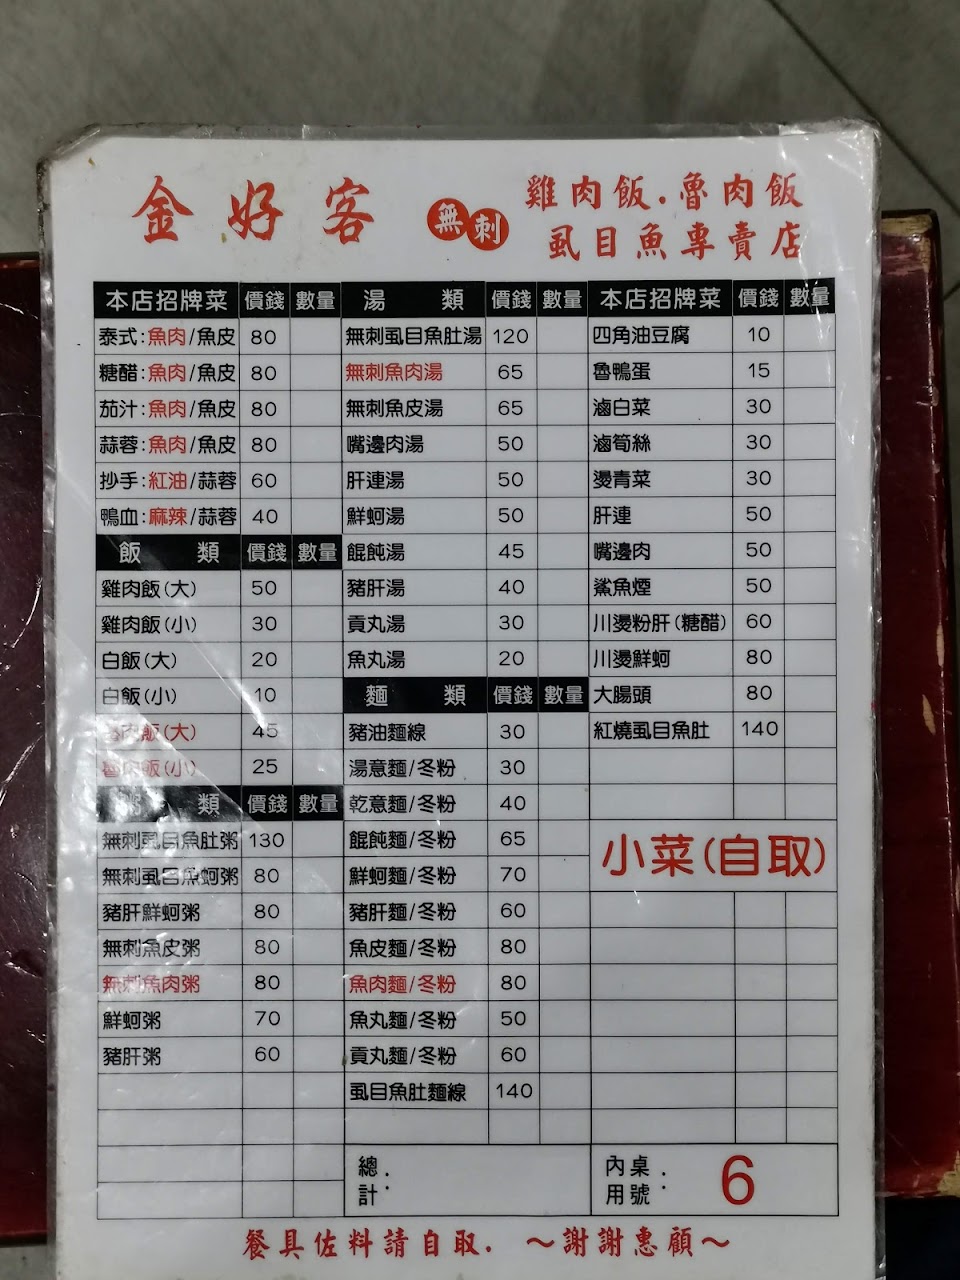 金好客 無刺 雞肉飯.魯肉飯
虱目魚專賣店
本店招牌菜 價錢 數量
泰式:魚肉/魚皮 80
糖醋:魚肉/魚皮 80
茄汁:魚肉/魚皮 80
蒜蓉:魚肉/魚皮 80
抄手:紅油/蒜蓉 60
鴨血:麻辣/蒜蓉 40
飯類 價錢 數量
雞肉飯(大) 50
雞肉飯(小) 30
白飯(大) 20
白飯(小) 10
魯肉飯(大) 45
魯肉飯(小) 25
粥類 價錢 數量
無刺虱目魚肚粥 130
無刺虱目魚蚵粥 80
豬肝鮮蚵粥 80
無刺魚皮粥 80
無刺魚肉粥 80
鮮蚵粥 70
豬肝粥 60
湯類 價錢 數量
無刺虱目魚肚湯 120
無刺魚肉湯 65
無刺魚皮湯 65
嘴邊肉湯 50
肝連湯 50
鮮蚵湯 50
餛飩湯 45
豬肝湯 40
貢丸湯 30
魚丸湯 20
麵類 價錢 數量
豬油麵線 30
湯意麵/冬粉 30
乾意麵/冬粉 40
餛飩麵/冬粉 65
鮮蚵麵/冬粉 70
豬肝麵/冬粉 60
魚皮麵/冬粉 80
魚肉麵/冬粉 80
魚丸麵/冬粉 50
貢丸麵/冬粉 60
虱目魚肚麵線 140
總計:
本店招牌菜 價錢 數量
四角油豆腐 10
魯鴨蛋 15
滷白菜 30
滷筍絲 30
燙青菜 30
肝連 50
嘴邊肉 50
鯊魚煙 50
川燙粉肝(糖醋) 60
川燙鮮蚵 80
大腸頭 80
紅燒虱目魚肚 140
小菜(自取)
內用桌號: 6
餐具佐料請自取. ～謝謝惠顧～